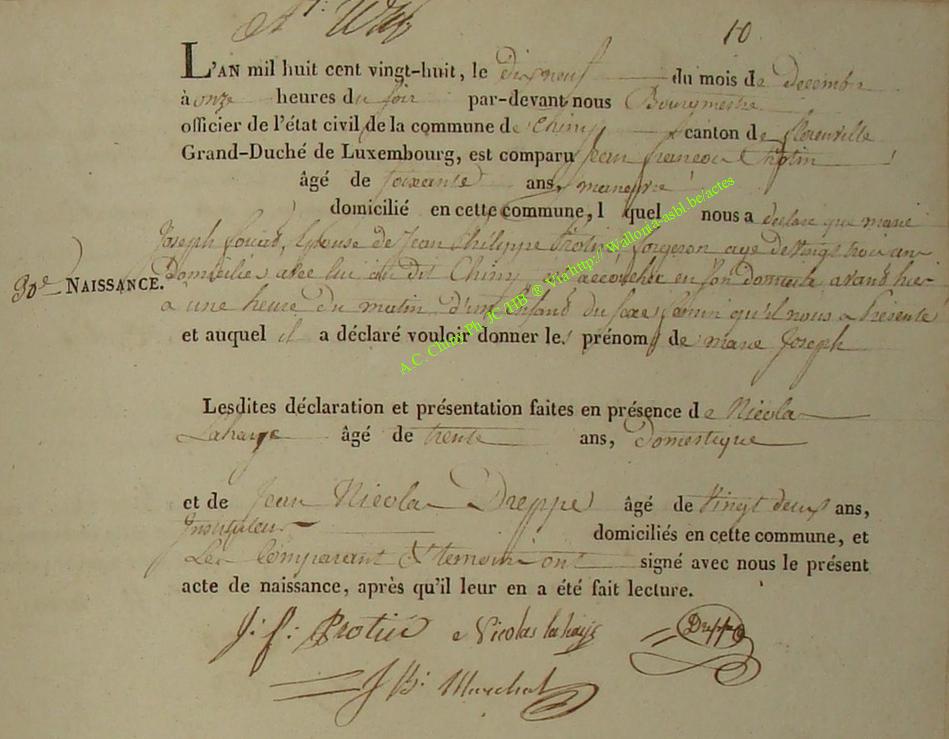 10
L'AN mil huit cent vingt-huit, le dix neuf du mois de Decembr
à onze heures du soir par-devant nous Bourgmestre
officier de l'état civil de la commune de Chiny canton de florenville
Grand-Duché de Luxembourg, est comparu Jean francois Protin
âgé de soixante ans, manœuvre
domicilié en cette commune, l quel nous a declare que marie
Joseph Epouse de Jean Philippe Protin forgeron age de vingt trois an
Domicilies avec lui au dit Chiny est accouchée en son domicile avand hier
a une heure du matin d'un Enfand du sexe feminin qu'il nous a Presente
30e NAISSANCE.
et auquel il a déclaré vouloir donner les prénoms de marie Joseph
Lesdites déclaration et présentation faites en présence de Nicola
Lahaye âgé de trente ans, Domestique
et de Jean Nicola Dreppe âgé de Vingt deux ans,
Instituteur domiciliés en cette commune, et
Les Comparant & temoins ont signé avec nous le présent
acte de naissance, après qu'il leur en a été fait lecture.
J: f: Protin Nicolas lahaye Dreppe
J B: Marchal
A.C. Chiny Ph. JC HB ® Via http:// Wallonia-asbl.be/actes